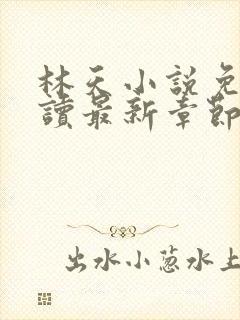 林天小説免
讀最新章節
出水小葱水上